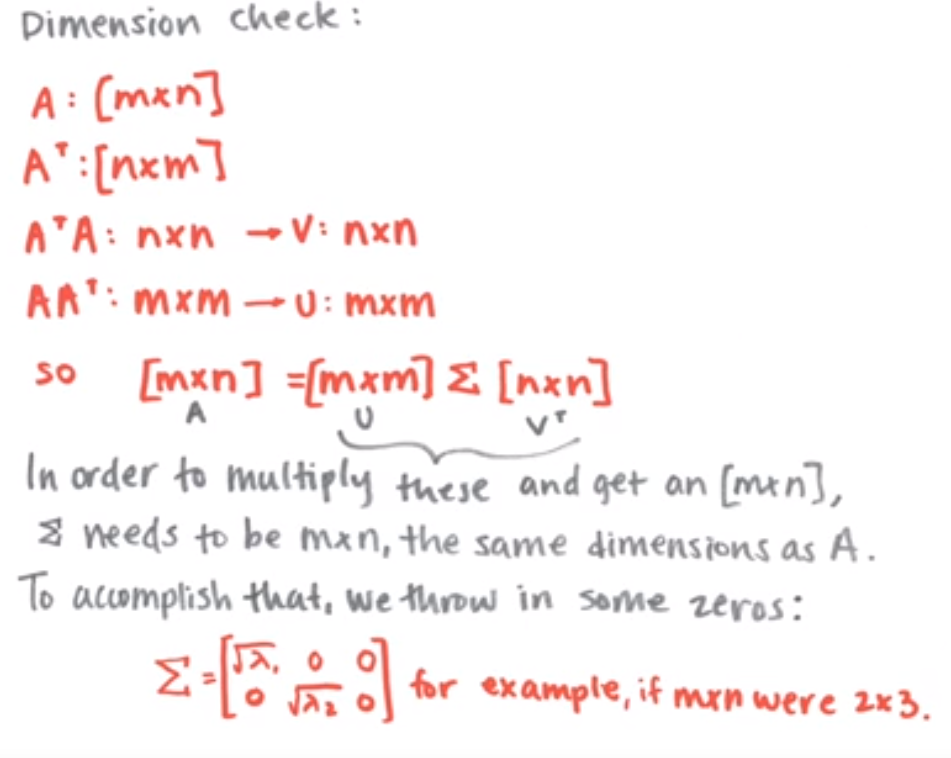 Dimension check:
A: [m×n]
Aᵀ: [n×m]
AᵀA: n×n → V: n×n
AAᵀ: m×m → U: m×m
so [m×n] = [m×m] Σ [n×n]
A U Vᵀ
In order to multiply these and get an [m×n],
Σ needs to be m×n, the same dimensions as A.
To accomplish that, we throw in some zeros:
Σ = [√λ₁ 0 0
0 √λ₂ 0] for example, if m×n were 2×3.